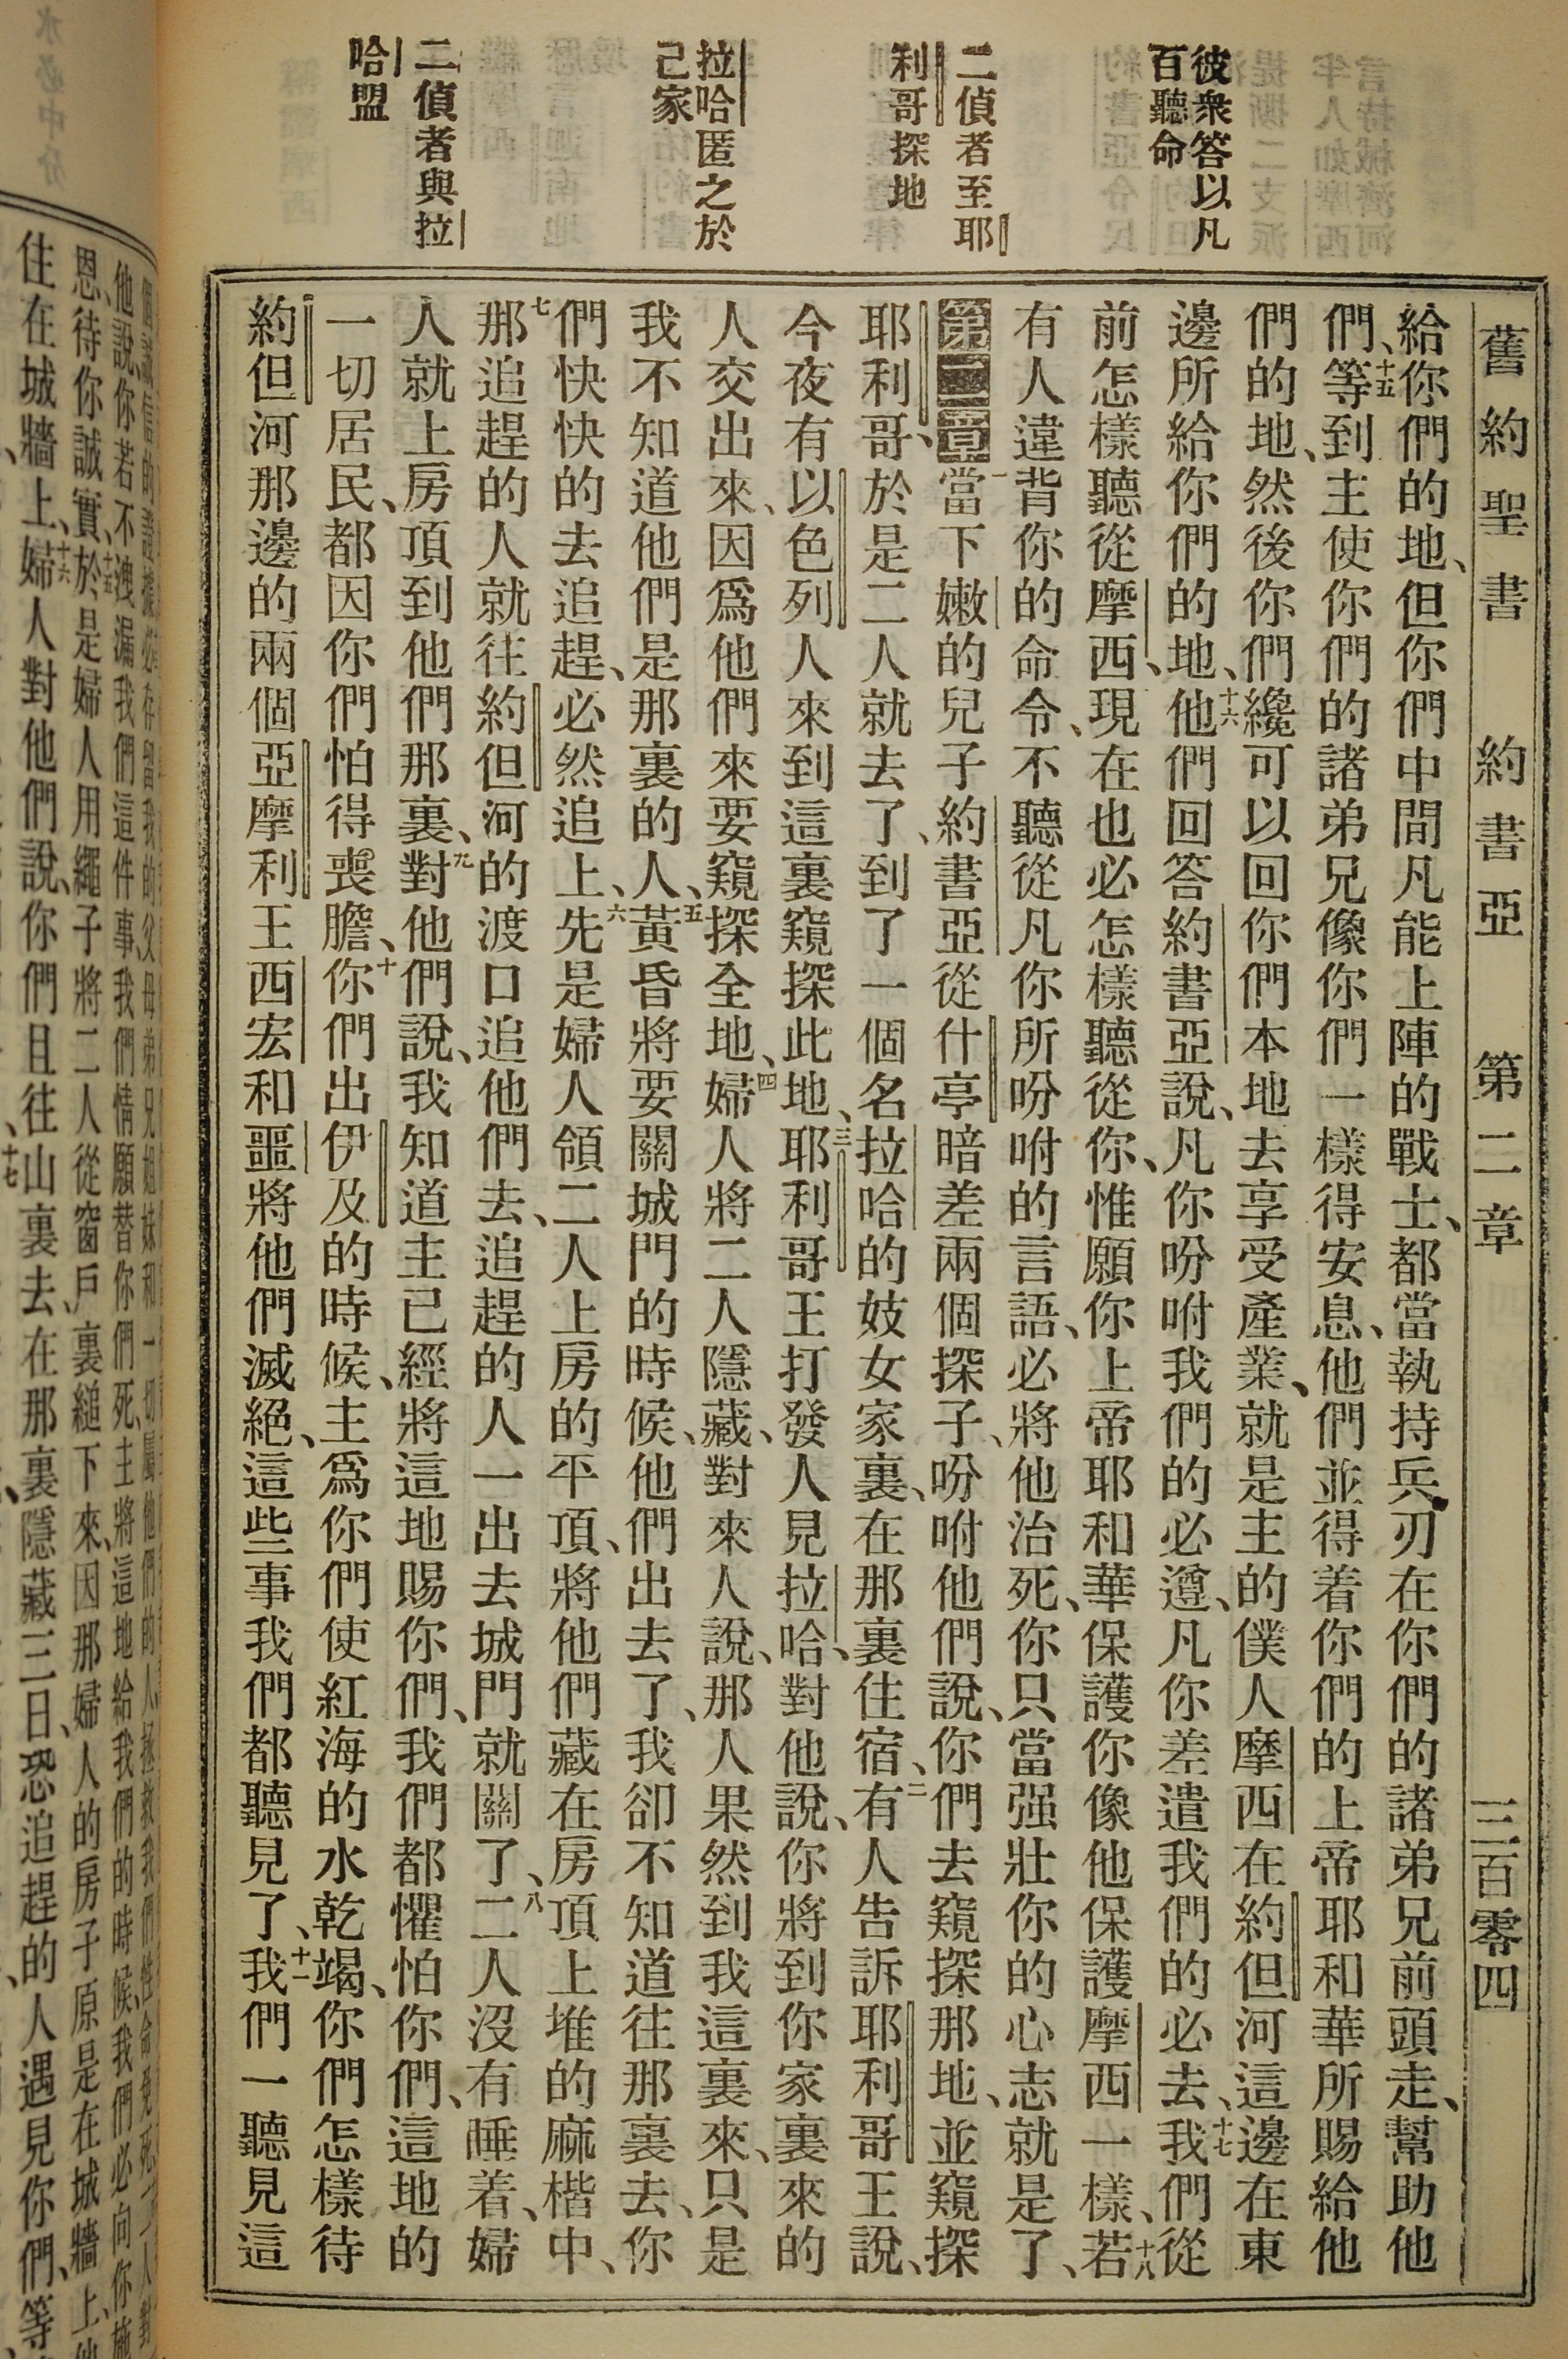 舊約聖書 約書亞 第二章 三百零四
彼衆答以凡
百聽命
二偵者至耶
利哥探地
拉哈匿之於
己家
二偵者與拉
哈盟
給你們的地、但你們中間凡能上陣的戰士、都當執持兵刃在你們的諸弟兄前頭走、幫助他
們、十五等到主使你們的諸弟兄像你們一樣得安息、他們並得着你們的上帝耶和華所賜給他
們的地、然後你們纔可以回你們本地去享受產業、就是主的僕人摩西在約但河這邊在東
邊所給你們的地、十六他們回答約書亞說、凡你吩咐我們的必遵、凡你差遣我們的必去、十七我們從
前怎樣聽從摩西、現在也必怎樣聽從你、惟願你上帝耶和華保護你像他保護摩西一樣、十八若
有人違背你的命令、不聽從凡你所吩咐的言語、必將他治死、你只當强壯你的心志就是了、
第二章一當下嫩的兒子約書亞從什亭暗差兩個探子、吩咐他們說、你們去窺探那地、並窺探
耶利哥、於是二人就去了、到了一個名拉哈的妓女家裏、在那裏住宿、二有人告訴耶利哥王說、
今夜有以色列人來到這裏窺探此地、三耶利哥王打發人見拉哈、對他說、你將到你家裏來的
人交出來、因爲他們來要窺探全地、四婦人將二人隱藏、對來人說、那人果然到我這裏來、只是
我不知道他們是那裏的人、五黃昏將要關城門的時候、他們出去了、我卻不知道往那裏去、你
們快快的去追趕、必然追上、六先是婦人領二人上房的平頂、將他們藏在房頂上堆的麻楷中、
七那追趕的人就往約但河的渡口追他們去、追趕的人一出去城門就關了、八二人沒有睡着、婦
人就上房頂到他們那裏、九對他們說、我知道主已經將這地賜你們、我們都懼怕你們、這地的
一切居民、都因你們怕得喪膽、十你們出伊及的時候、主爲你們使紅海的水乾竭、你們怎樣待
約但河那邊的兩個亞摩利王西宏和噩將他們滅絕、這些事我們都聽見了、十一我們一聽見這
恩待你誠實、十五於是婦人用繩子將二人從窗戶裏縋下來、因那婦人的房子原是在城牆上、
住在城牆上、十六婦人對他們說、你們且往山裏去、在那裏隱藏三日、恐追趕的人遇見你們、等